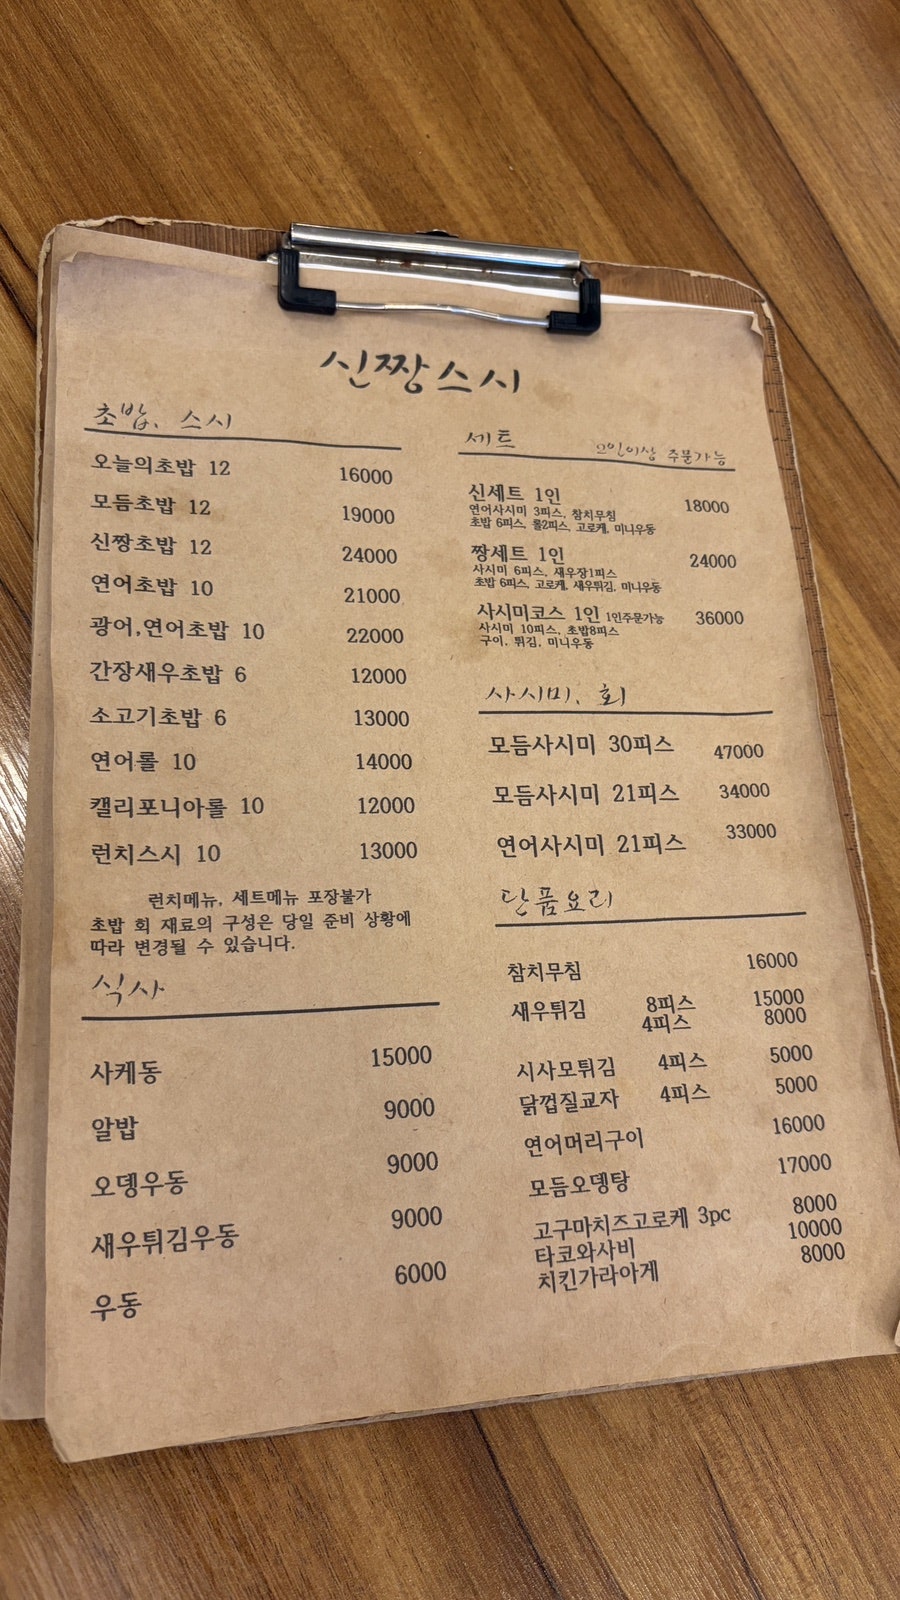 신짱스시
초밥. 스시
오늘의초밥 12 16000
모듬초밥 12 19000
신짱초밥 12 24000
연어초밥 10 21000
광어,연어초밥 10 22000
간장새우초밥 6 12000
소고기초밥 6 13000
연어롤 10 14000
캘리포니아롤 10 12000
런치스시 10 13000
런치메뉴, 세트메뉴 포장불가
초밥 회 재료의 구성은 당일 준비 상황에
따라 변경될 수 있습니다.
식사
사케동 15000
알밥 9000
오뎅우동 9000
새우튀김우동 9000
우동 6000
세트 2인이상 주문가능
신세트 1인 18000
연어사시미 3피스, 참치무침
초밥 6피스, 롤2피스, 고로케, 미니우동
짱세트 1인 24000
사시미 6피스, 새우장1피스
초밥 6피스, 고로케, 새우튀김, 미니우동
사시미코스 1인 1인주문가능 36000
사시미 10피스, 초밥8피스
구이, 튀김, 미니우동
사시미. 회
모듬사시미 30피스 47000
모듬사시미 21피스 34000
연어사시미 21피스 33000
단품요리
참치무침 16000
새우튀김 8피스 15000
4피스 8000
시사모튀김 4피스 5000
닭껍질교자 4피스 5000
연어머리구이 16000
모듬오뎅탕 17000
고구마치즈고로케 3pc 8000
타코와사비 10000
치킨가라아게 8000